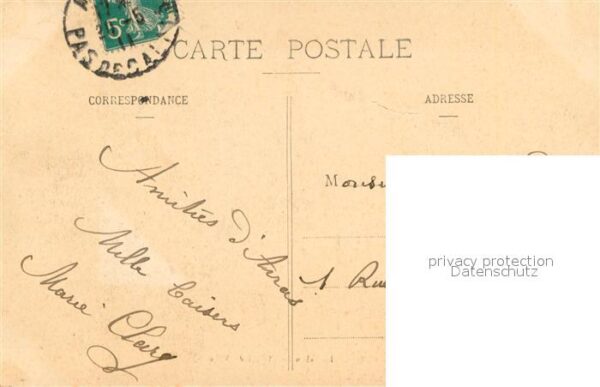 5c
PAS DE CALAIS
CARTE POSTALE
CORRESPONDANCE
ADRESSE
Amitiés d'Arras
Mille baisers
Marie Claire
Monsi
1 Rue
privacy protection
Datenschutz